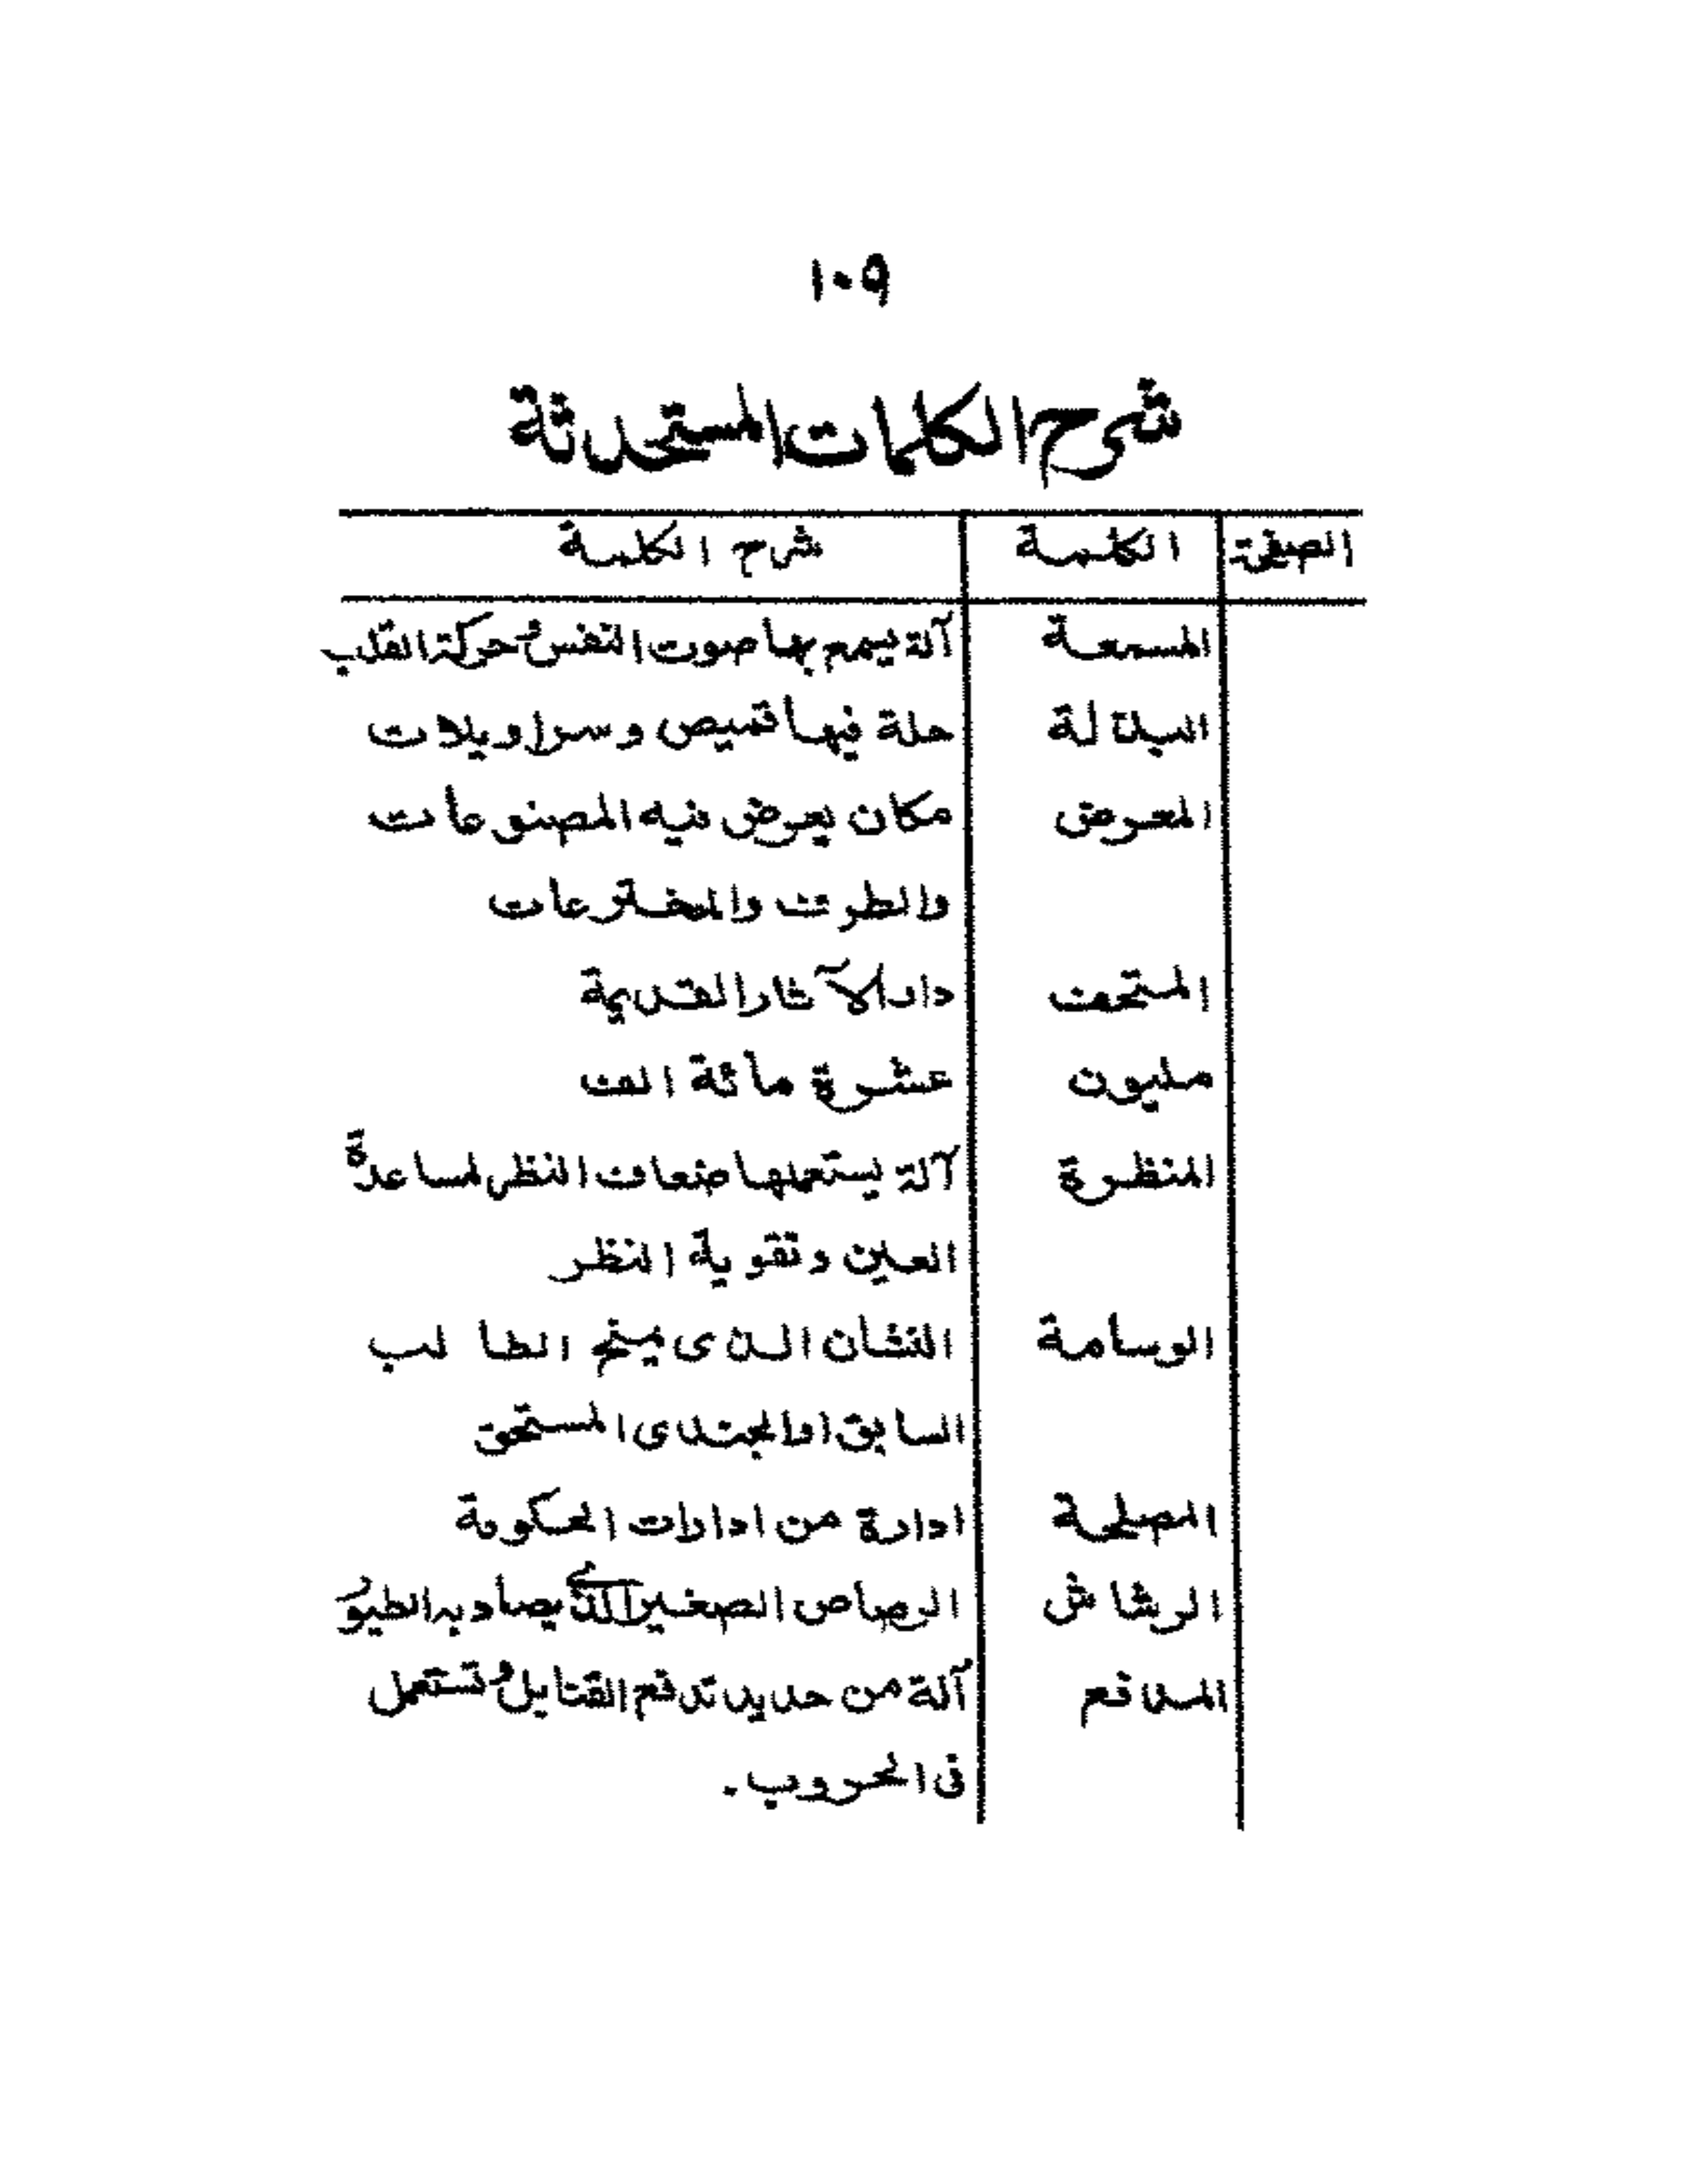 ١٠٩
شرح الكلمات المستحدثة
الصفحة الكلمة شرح الكلمة
المسمعة آلة يسمع بها صوت النفس وحركة القلب
البذلة حلة فيها قميص وسراويلات
المعرض مكان يعرض فيه المصنوعات
والطرف والمخترعات
المتحف دار الآثار القديمة
مليون عشرة مائة الف
المنظرة آلة يستعملها ضعاف النظر لمساعدة
العين وتقوية النظر
الوسامة النشان الذى يمنح الطالب
السابق اوالجندى المستحق
المصلحة ادارة من ادارات الحكومة
الرشاش الرصاص الصغير الذى يصاد به الطيور
المدافع آلة من حديد تدفع القنابل وتستعمل
فى الحروب.